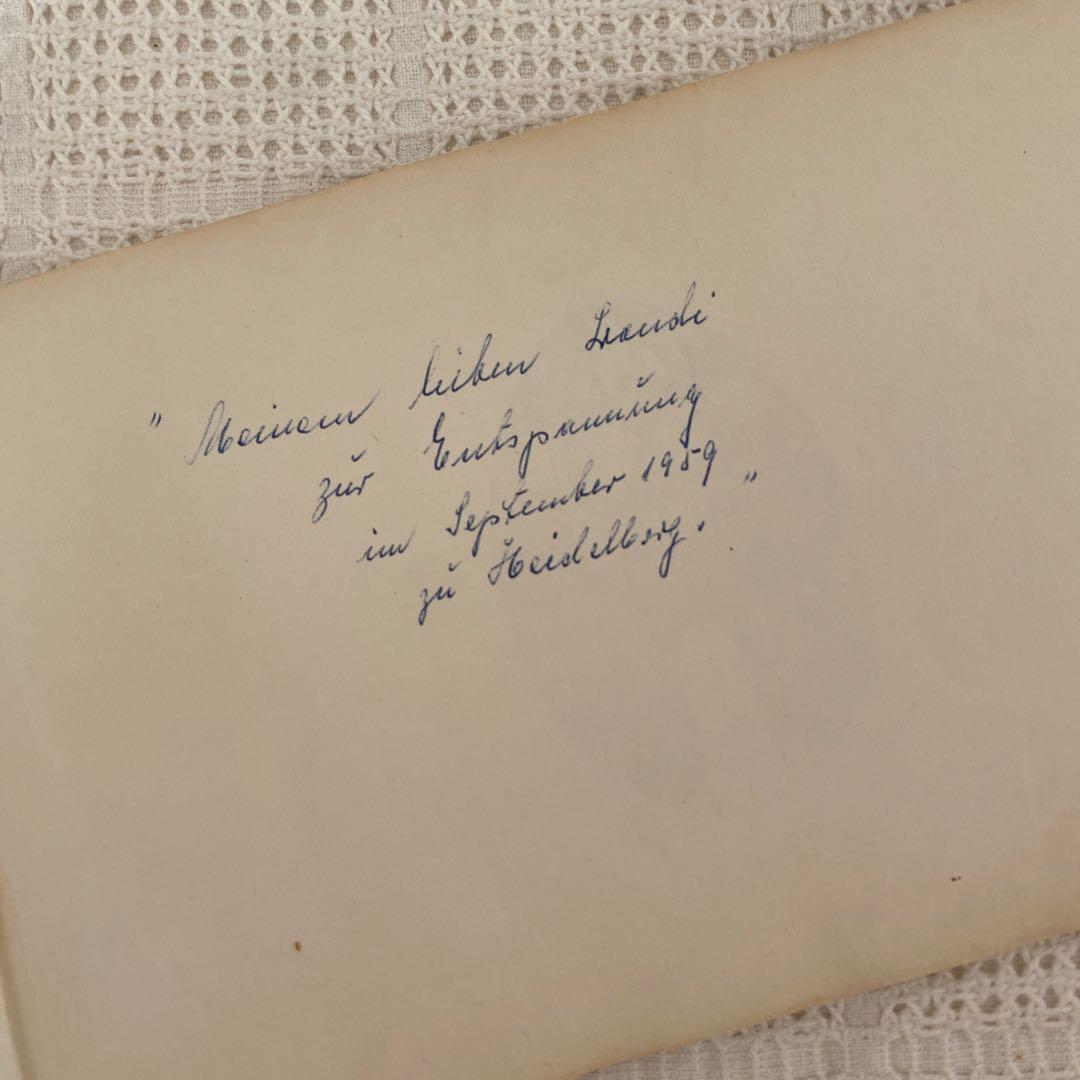 " Meinem lieben
zur Entspannung
im September 1959 "
zu Heidelberg.